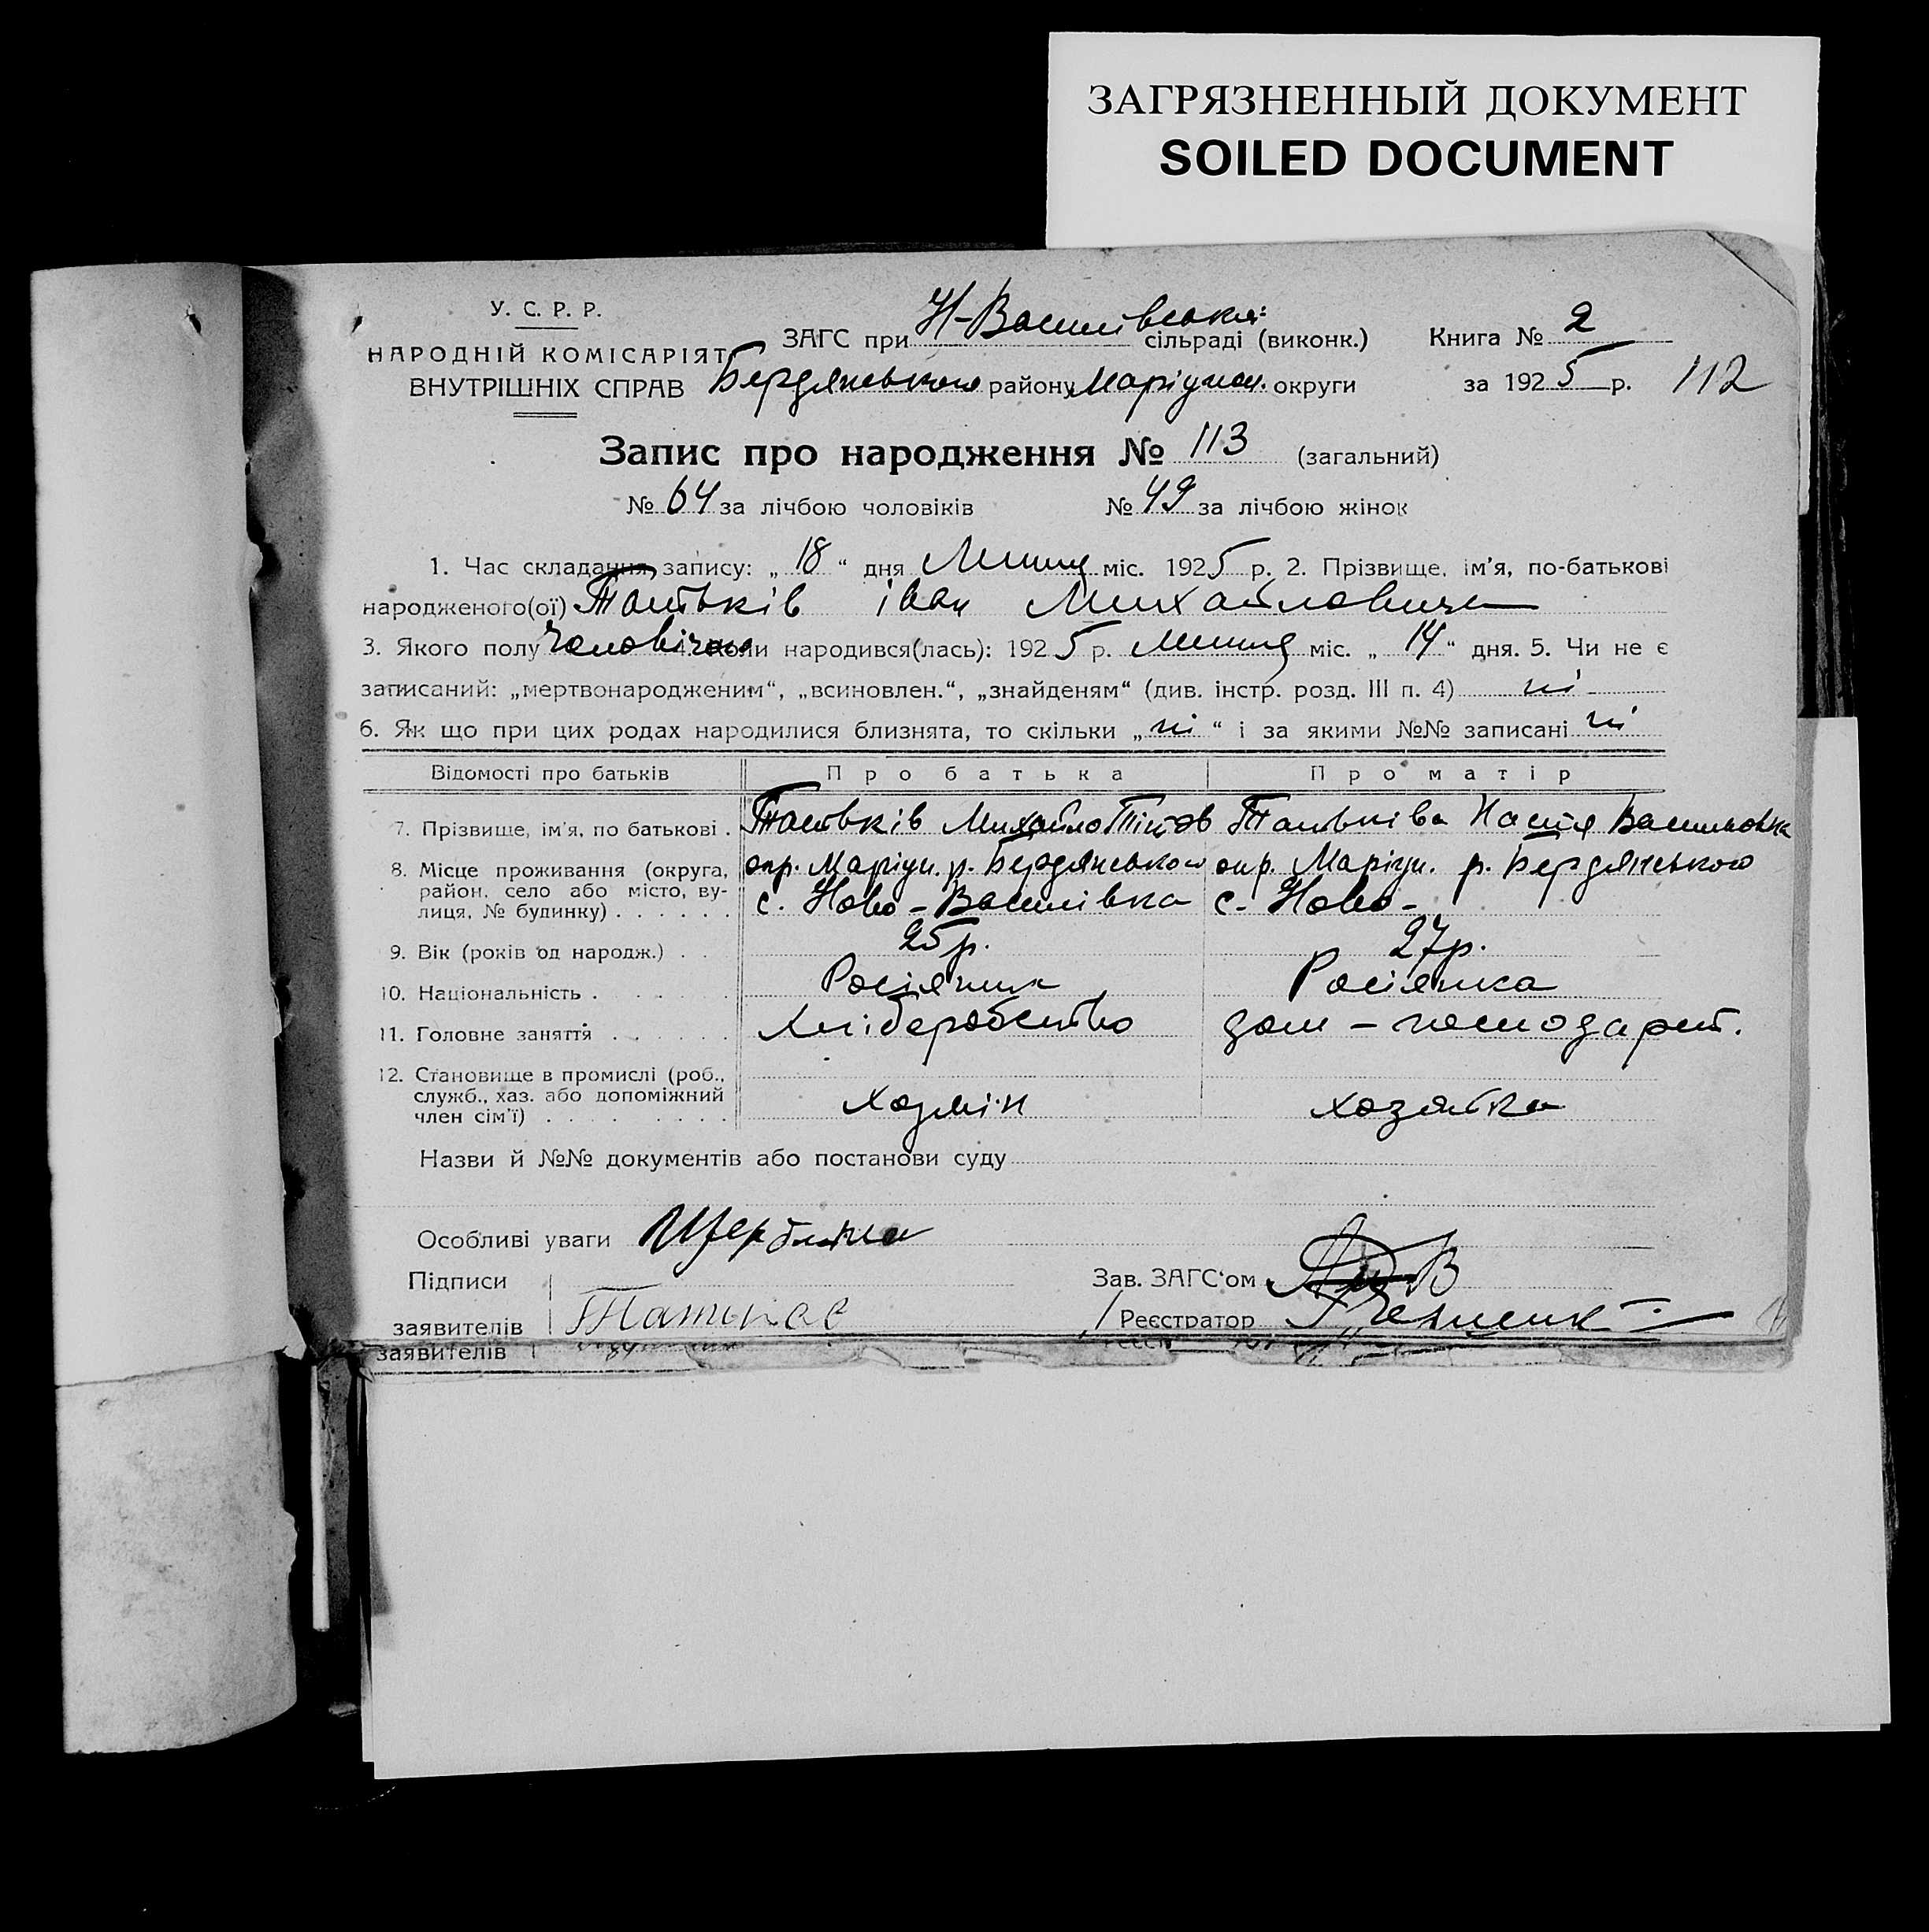 ЗАГРЯЗНЕННЫЙ ДОКУМЕНТ
SOILED DOCUMENT
У. С. Р. Р.
НАРОДНІЙ КОМІСАРІЯТ
ВНУТРІШНІХ СПРАВ
ЗАГС при Н-Василівській сільраді (виконк.) Книга № 2
Бердянського району Маріупол. округи за 1925 р. 112
Запис про народження № 113 (загальний)
№ 64 за лічбою чоловіків № 49 за лічбою жінок
1. Час складання запису: „ 18 “ дня Липня міс. 1925 р. 2. Прізвище, ім'я, по-батькові
народженого(ої) іван Михайлович
3. Якого полу Чоловічого 4. Коли народився(лась): 1925 р. Липня міс. „ 14 “ дня. 5. Чи не є
записаний: „мертвонародженим“, „всиновлен.“, „знайденям“ (див. інстр. розд. III п. 4) ні
6. Як що при цих родах народилися близнята, то скільки „ ні “ і за якими №№ записані ні
Відомості про батьків Про батька Про матір
7. Прізвище, ім'я, по батькові . Михайло Тітов Настя
8. Місце проживання (округа, район, село або місто, вулиця, № будинку) . . . . . .
окр. Маріуп. р. Бердянського окр. Маріуп. р. Бердянського
с. Ново-Василівка с. Ново-
9. Вік (років од народж.) . . . 25 р. 27 р.
10. Національність . . . . . Росіянин Росіянка
11. Головне заняття . . . . . . Хліборобство дом-господарст.
12. Становище в промислі (роб., служб., хаз. або допоміжний член сім'ї) . . . . . . . . хозяін хозяйка
Назви й №№ документів або постанови суду
Особливі уваги
Підписи
заявителів
Зав. ЗАГС'ом
Реєстратор
заявителів